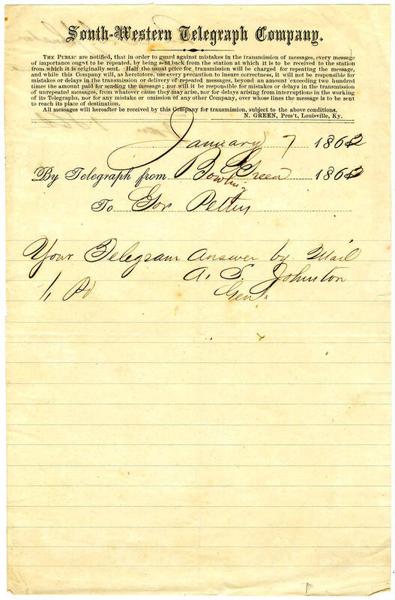 South-Western Telegraph Company.
THE PUBLIC are notified, that in order to guard against mistakes in the transmission of messages, every message
of importance ought to be repeated, by being sent back from the station at which it is to be received to the station
from which it is originally sent. Half the usual price for transmission will be charged for repeating the message,
and while this Company will, as heretofore, use every precaution to insure correctness, it will not be responsible for
mistakes or delays in the transmission or delivery of repeated messages, beyond an amount exceeding two hundred
times the amount paid for sending the message; nor will it be responsible for mistakes or delays in the transmission
of unrepeated messages, from whatever cause they may arise, nor for delays arising from interruptions in the working
of its Telegraphs, nor for any mistake or omission of any other Company, over whose lines the message is to be sent
to reach its place of destination.
All messages will hereafter be received by this Company for transmission, subject to the above conditions.
N. GREEN, Pres't, Louisville, Ky.
January 7 1862
By Telegraph from Bowling Green 1862
To Gov Pettus
Your Telegram Answer by Mail
A. S. Johnston
Genl.